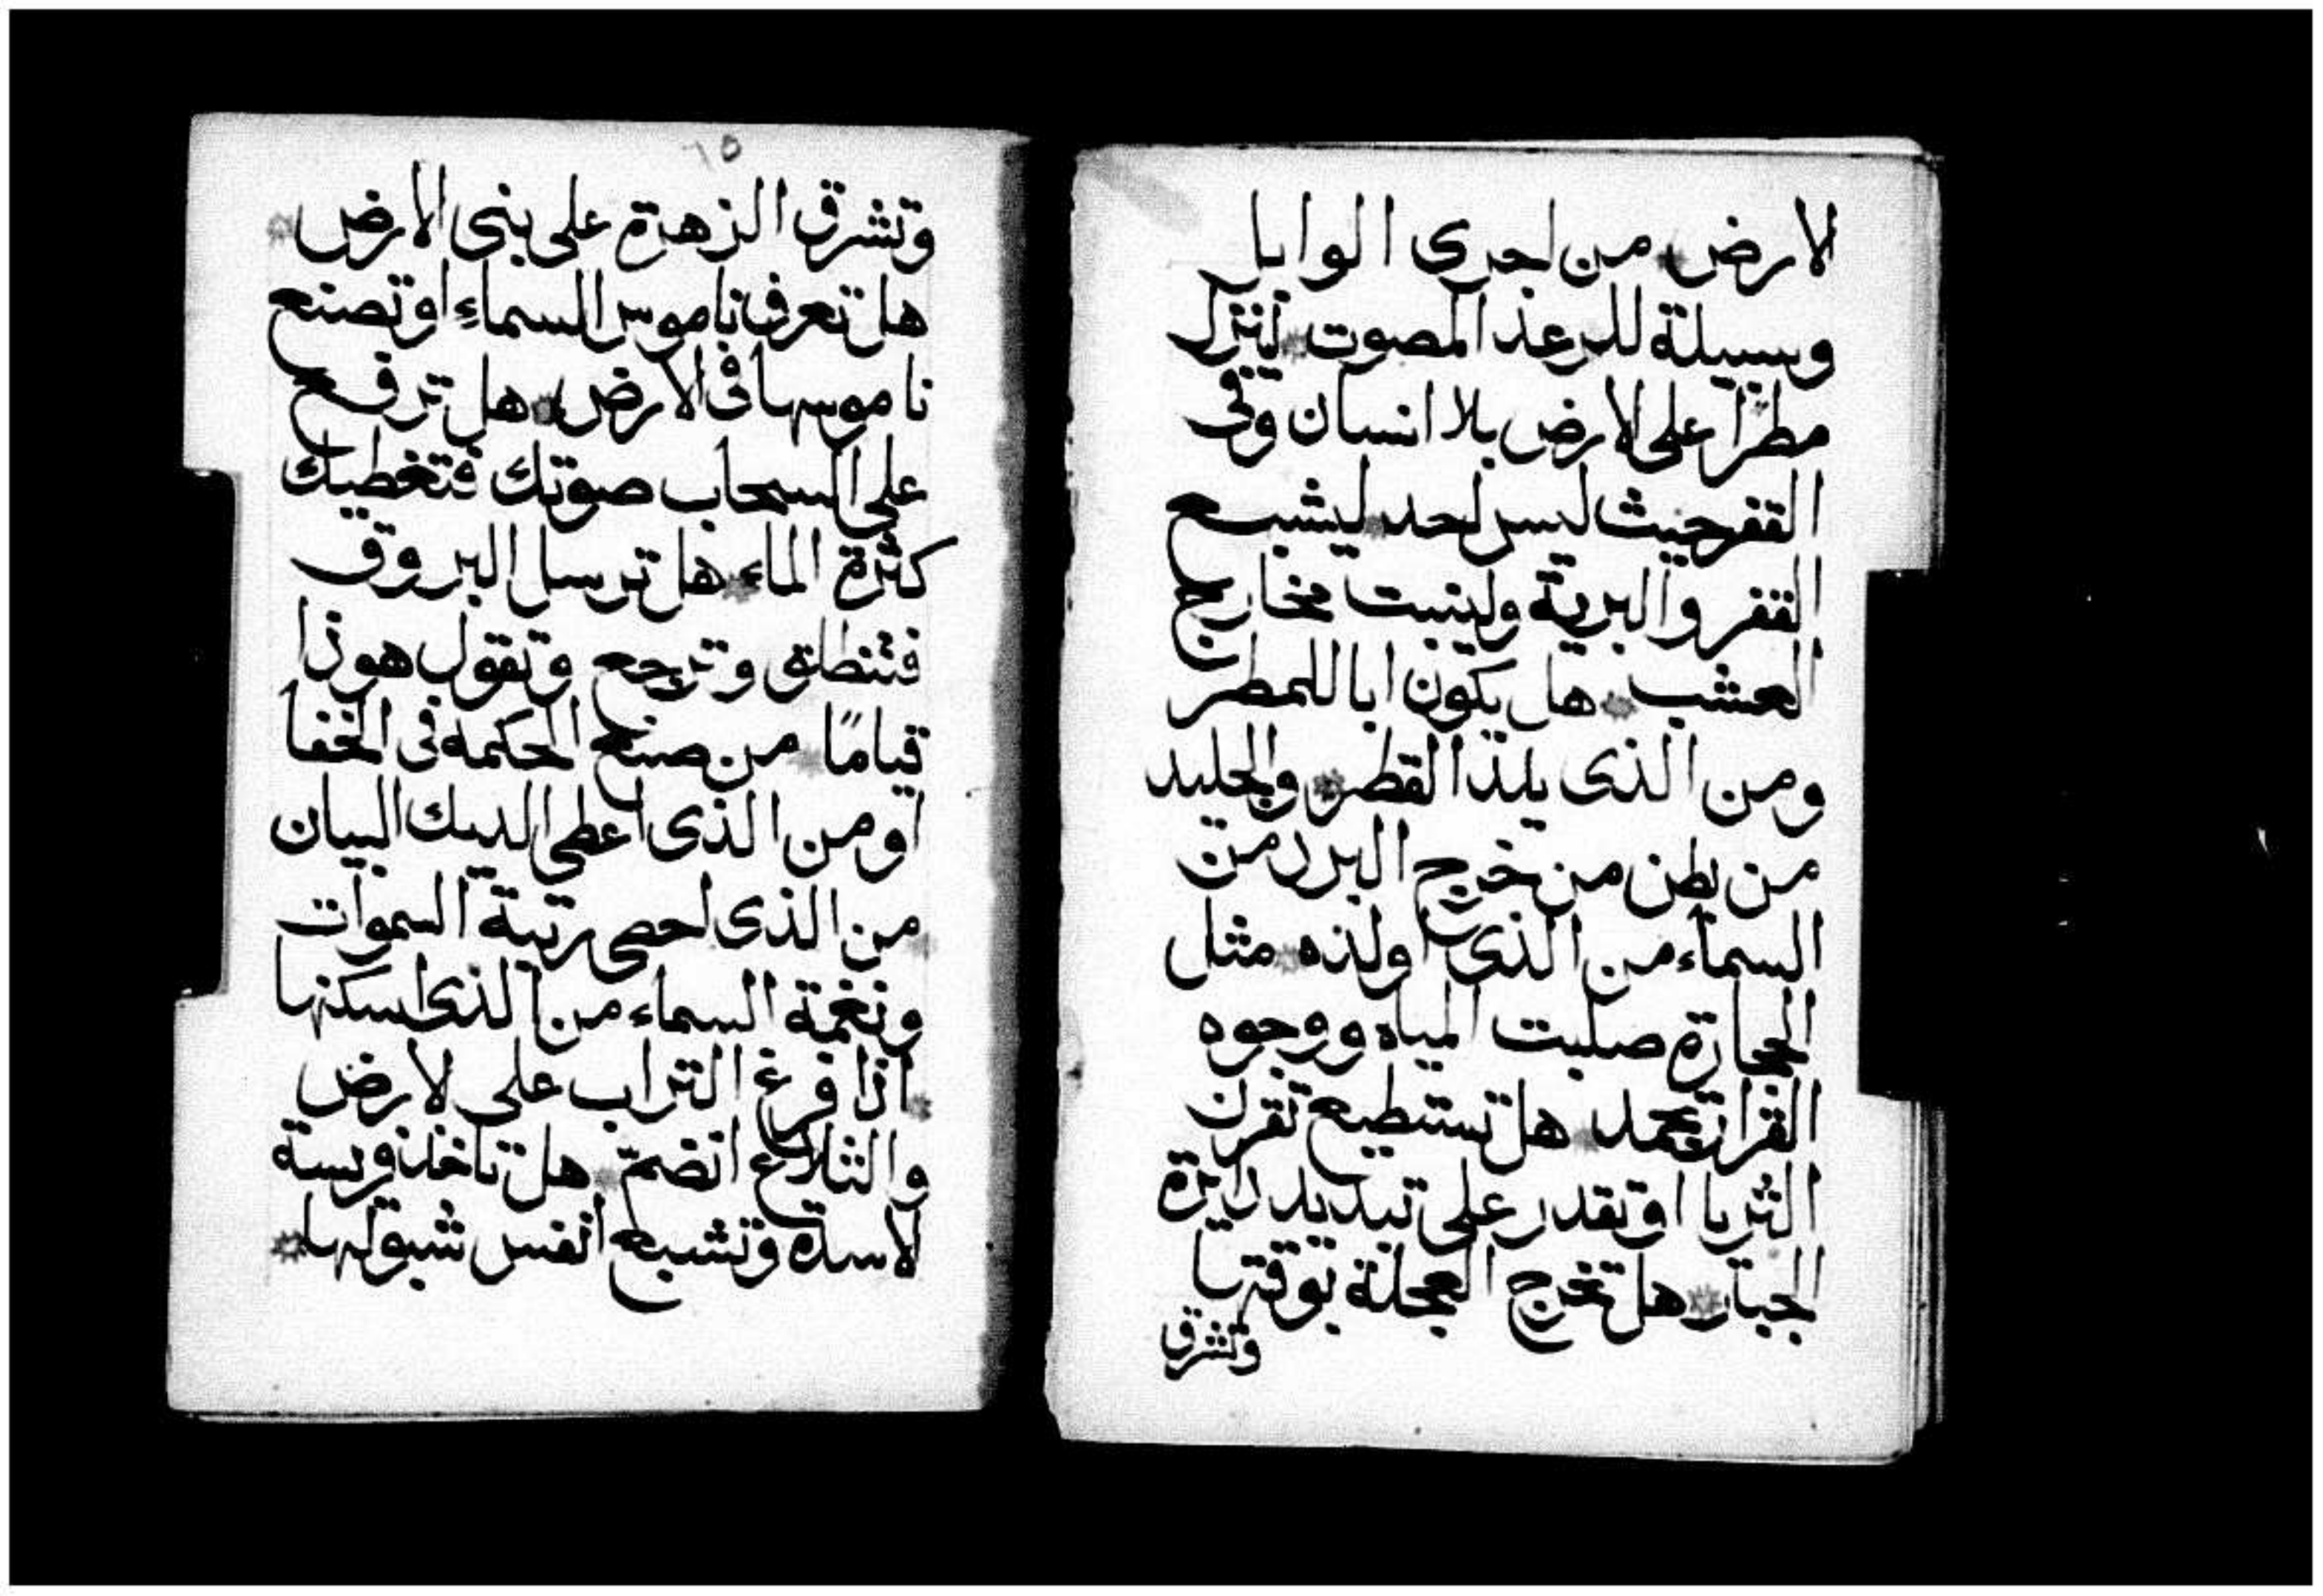 الارض من اجرى الوابل
وسيلة للرعد المصوت لينزل
مطرا على الارض بلا انسان وفى
القفر حيث ليس احد ليشبع
القفر والبرية ولينبت مخارج
العشب هل يكون ابا للمطر
ومن الذى يلد القطر والجليد
من بطن من خرج البرد من
السماء من الذى اولده مثل
الحجارة صلبت المياه ووجوه
تجمد هل تستطيع تقرن
الثريا او تقدر على تبديد دايرة
الجبار هل تخرج العجلة بوقتها
وتشرق
١٥
وتشرق الزهرة على بنى الارض
هل تعرف ناموس السماء او تصنع
ناموسها فى الارض هل ترفع
على السحاب صوتك فتغطيك
كثرة الماء هل ترسل البروق
فتنطلق وترجع وتقول هوذا
قيامًا من صنع الحكمه فى الخفا
او من الذى اعطى الديك البيان
من الذى احصى رتبة السموات
ونغمة السماء من الذى اسكنها
اذا فرغ التراب على لارض
والثلاع انضم هل تاخذ فريسة
لاسدة وتشبع انفس شبولها